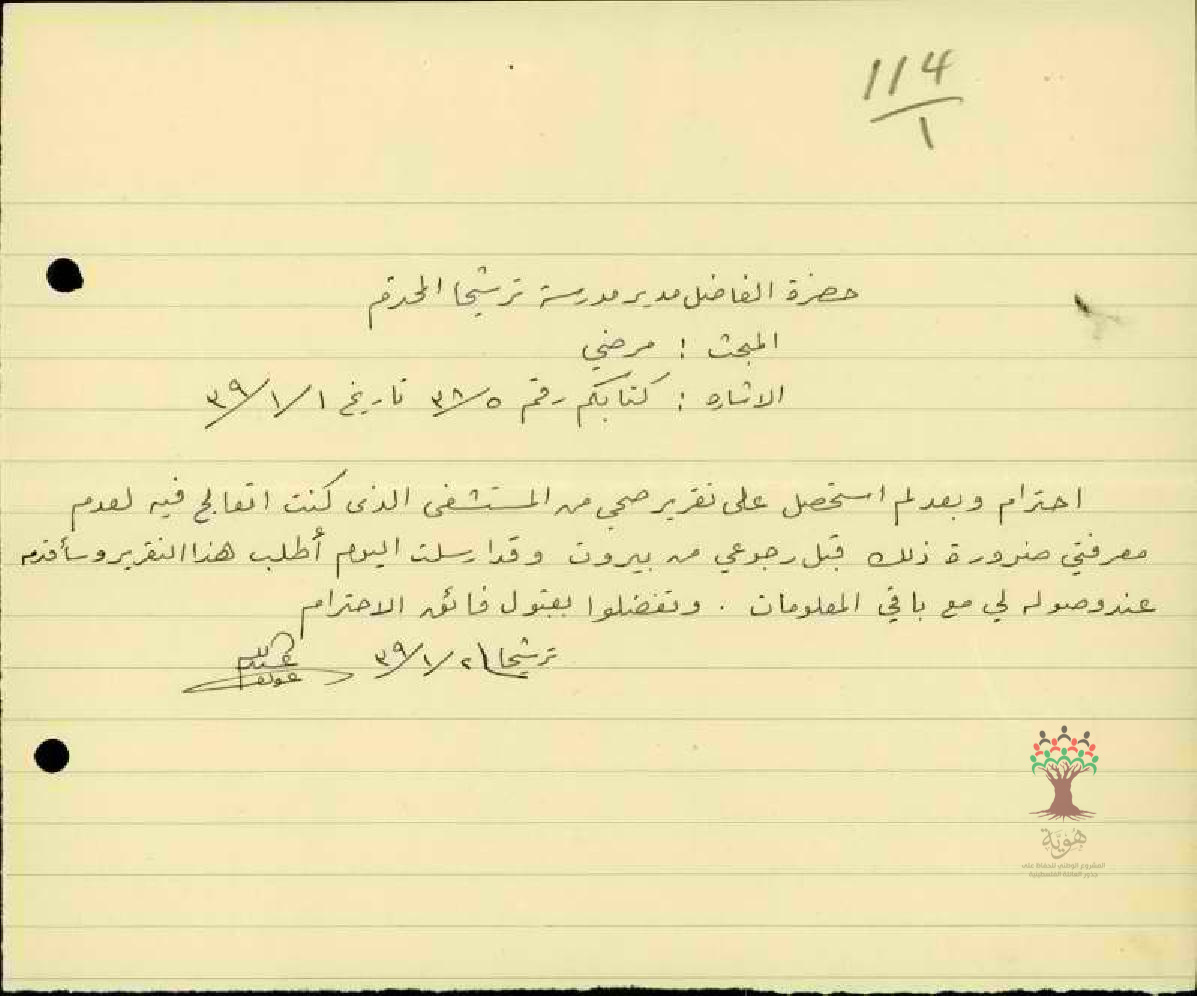 114
١
حضرة الفاضل مدير مدرسة ترشيحا المحترم
المبحث : مرضي
الاشاره : كتابكم رقم ٣٨/٥ تاريخ ٣٩/١/١
احترام وبعد لم استحصل على تقرير صحي من المستشفى الذى كنت اتعالج فيه لعدم
معرفتي ضرورة ذلك قبل رجوعي من بيروت وقد ارسلت اليوم أطلب هذا التقرير وسأقدمه
عند وصوله لي مع باقي المعلومات . وتفضلوا بقبول فائق الاحترام
ترشيحا ٣٩/١/٢ عبدالله
هُوِيَّة
المشروع الوطني للحفاظ على
جذور العائلة الفلسطينية